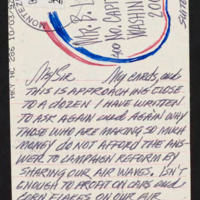 MR. B. L
400 NO. CAPIT
WASHIN
200
SUITE
MONTEZ
MRY NC 286 10/03/9
MY SIR MY CARDS, AND
THIS IS APPROACHING CLOSE
TO A DOZEN I HAVE WRITTEN
TO ASK AGAIN AND AGAIN WHY
THOSE WHO ARE MAKING SO MUCH
MONEY DO NOT AFFORD THE ANS-
WER TO CAMPAIGN REFORM BY
SHARING OUR AIR WAVES. ISN'T
ENOUGH TO PROFIT ON CARS AND
CORN FLAKES ON OUR AIR